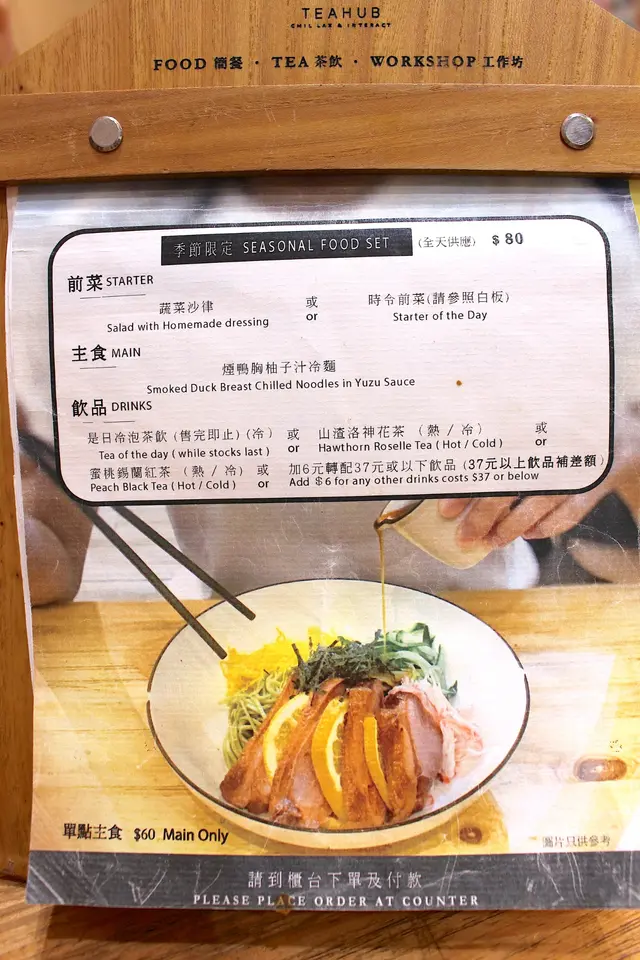 TEAHUB
CHILLAX & INTERACT
FOOD 簡餐 · TEA 茶飲 · WORKSHOP 工作坊
季節限定 SEASONAL FOOD SET (全天供應) $ 80
前菜 STARTER
蔬菜沙律 或 時令前菜(請參照白板)
Salad with Homemade dressing or Starter of the Day
主食 MAIN
煙鴨胸柚子汁冷麵
Smoked Duck Breast Chilled Noodles in Yuzu Sauce
飲品 DRINKS
是日冷泡茶飲 (售完即止) (冷) 或 山渣洛神花茶 (熱 / 冷) 或
Tea of the day ( while stocks last ) or Hawthorn Roselle Tea ( Hot / Cold ) or
蜜桃錫蘭紅茶 (熱 / 冷) 或 加6元轉配37元或以下飲品 (37元以上飲品補差額)
Peach Black Tea ( Hot / Cold ) or Add $6 for any other drinks costs $37 or below
單點主食 $60 Main Only
圖片只供參考
請到櫃台下單及付款
PLEASE PLACE ORDER AT COUNTER